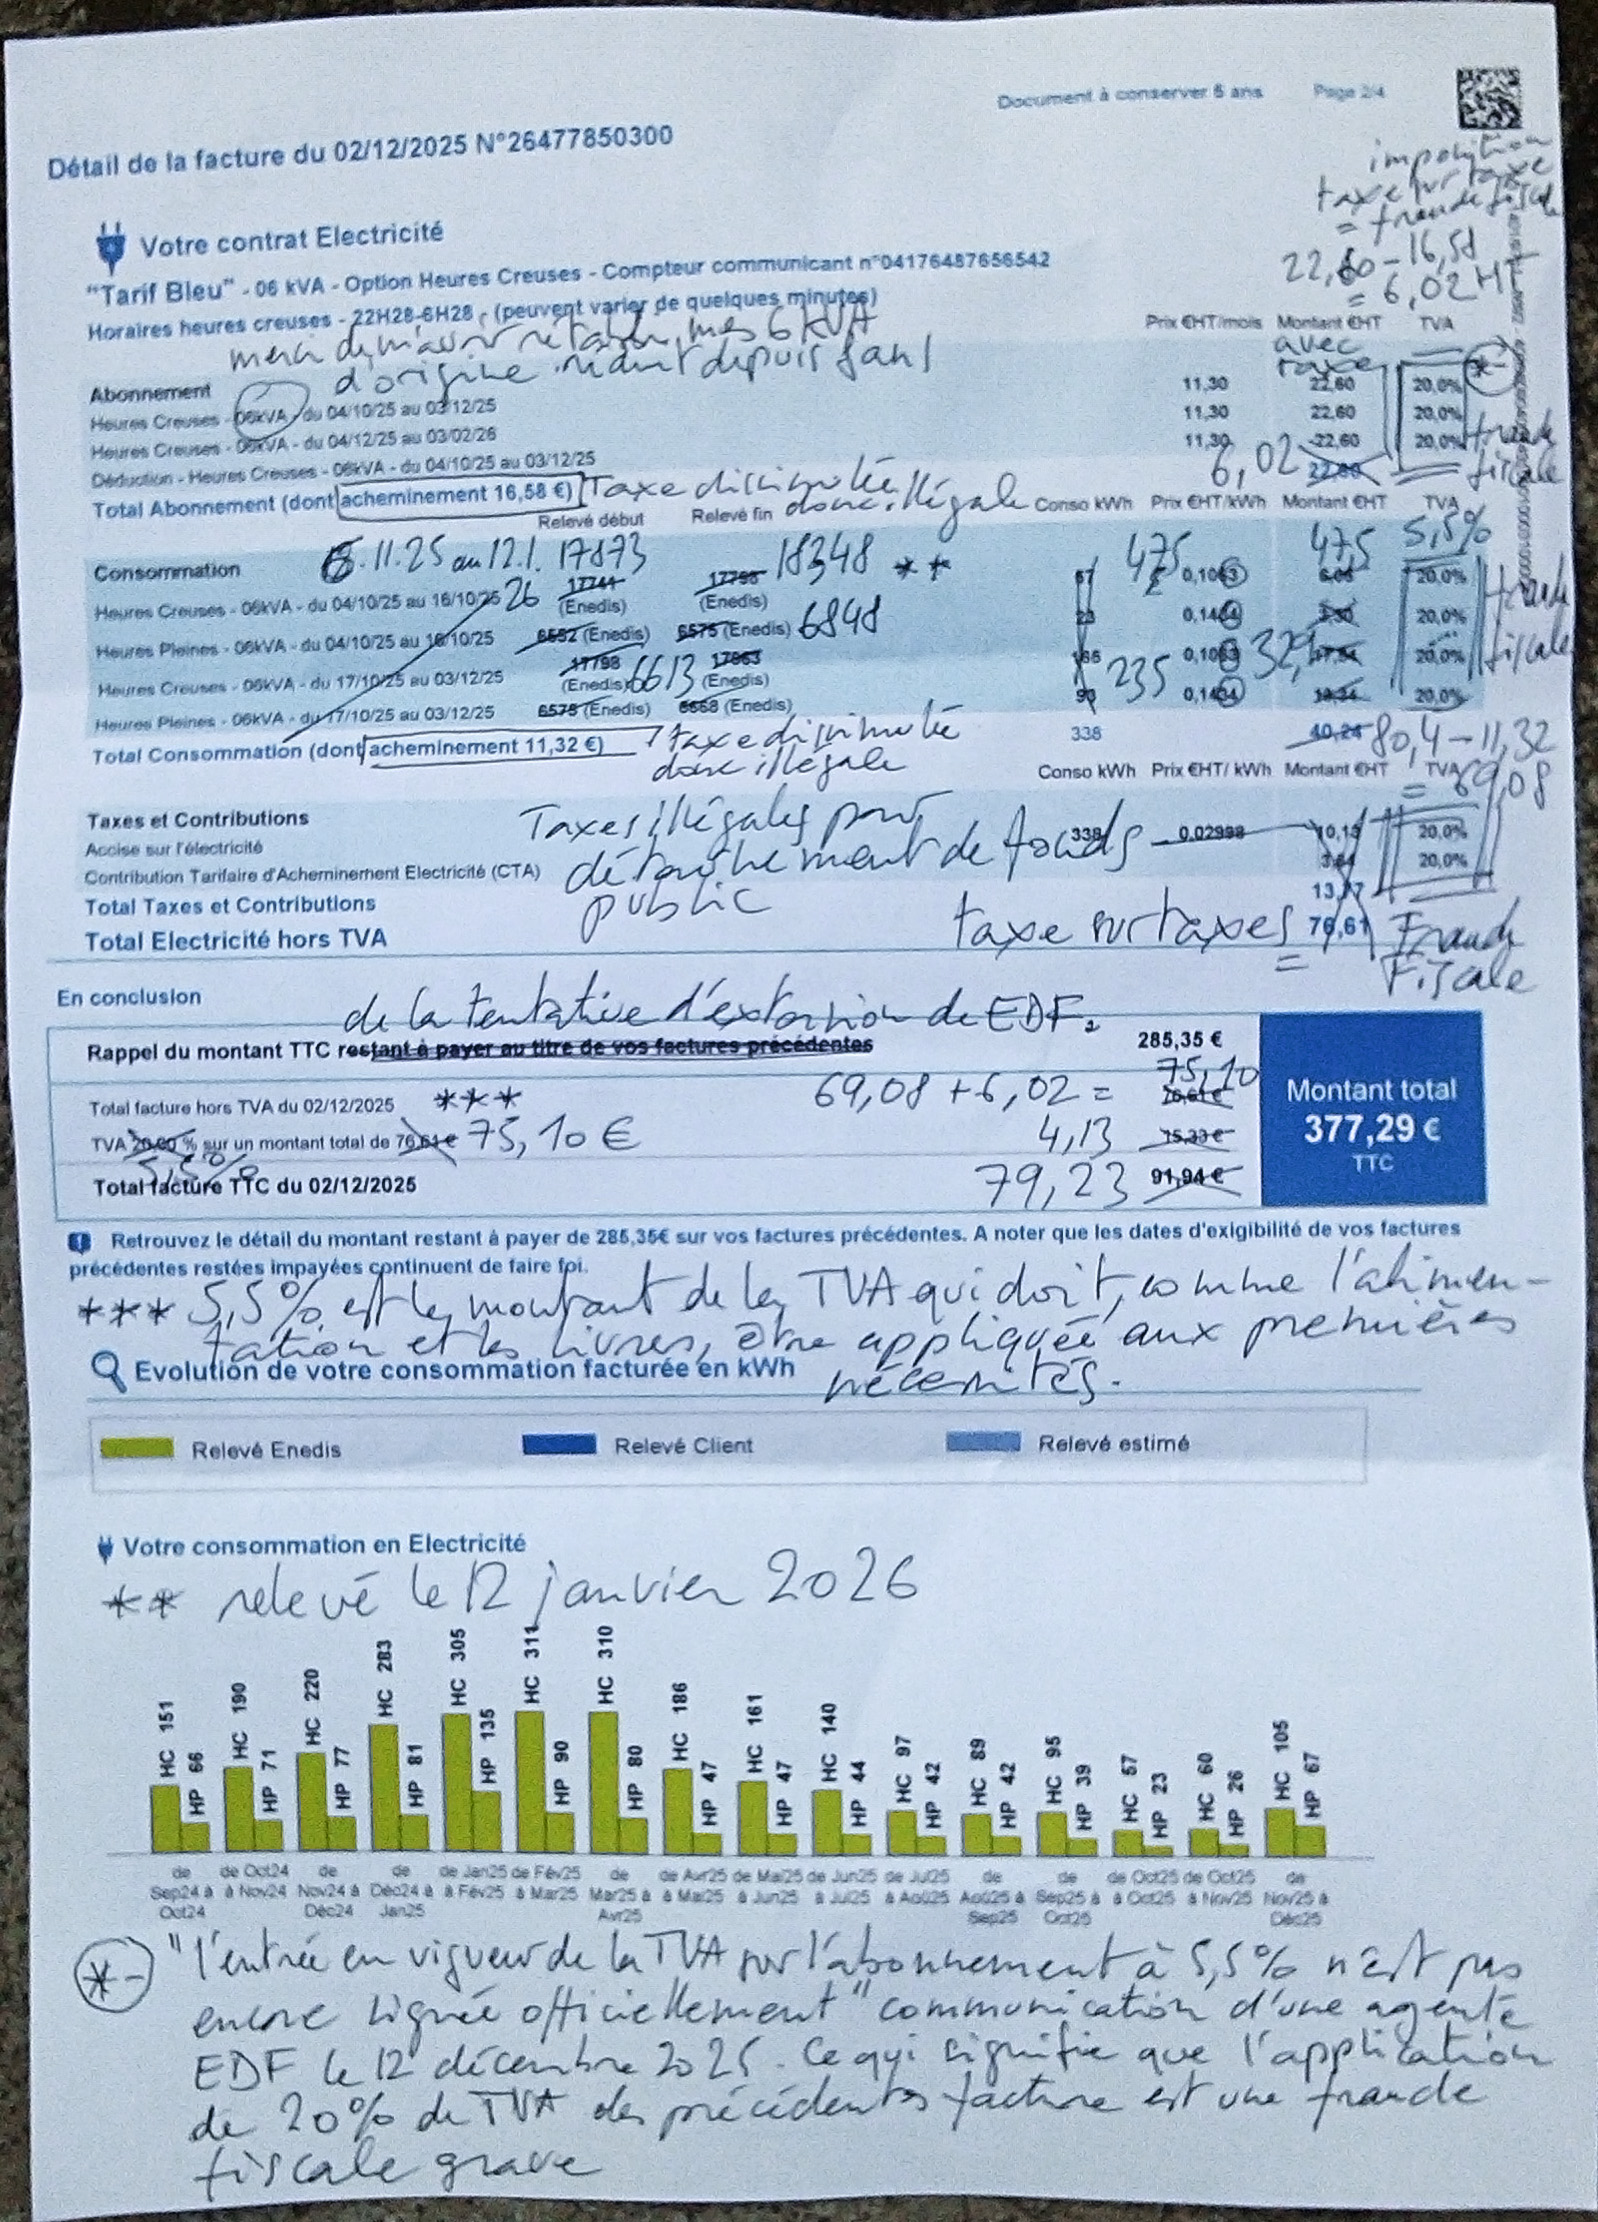 Document à conserver 5 ans
Page 2/4
Détail de la facture du 02/12/2025 N°26477850300
imposition
taxe sur taxe
= fraude fiscale
22,60-16,58
= 6,02 HT
Votre contrat Electricité
"Tarif Bleu" - 06 kVA - Option Heures Creuses - Compteur communicant n°04176487656542
Horaires heures creuses - 22H28-6H28 - (peuvent varier de quelques minutes)
merci de m'avoir rétabli mes 6 kVA
d'origine réduit depuis 8 ans
Prix €HT/mois Montant €HT TVA
avec
taxe
*-
Abonnement
Heures Creuses - 06kVA - du 04/10/25 au 03/12/25 11,30 22,60 20,0%
Heures Creuses - 06kVA - du 04/12/25 au 03/02/26 11,30 22,60 20,0%
Déduction - Heures Creuses - 06kVA - du 04/10/25 au 03/12/25 11,30 -22,60 20,0%
fraude
fiscale
Total Abonnement (dont acheminement 16,58 €) 6,02 22,60
Taxe dissimulée
donc illégale
Relevé début Relevé fin Conso kWh Prix €HT/kWh Montant €HT TVA
Consommation
6.11.25 au 12.1. 17873 18348 ** 475 47,5 5,5%
26
Heures Creuses - 06kVA - du 04/10/25 au 16/10/25 17741 (Enedis) 17798 (Enedis) 57 0,1063 6,06 20,0%
Heures Pleines - 06kVA - du 04/10/25 au 16/10/25 6552 (Enedis) 6575 (Enedis) 6848 23 0,1434 3,30 20,0%
Heures Creuses - 06kVA - du 17/10/25 au 03/12/25 17798 (Enedis) 6613 17963 (Enedis) 165 235 0,1063 32,9 17,54 20,0%
Heures Pleines - 06kVA - du 17/10/25 au 03/12/25 6575 (Enedis) 6668 (Enedis) 93 0,1434 13,34 20,0%
fraude
fiscale
Total Consommation (dont acheminement 11,32 €) 338 40,24 80,4-11,32
= 69,08
taxe dissimulée
donc illégale
Conso kWh Prix €HT/ kWh Montant €HT TVA
Taxes et Contributions
Accise sur l'électricité 338 0,02998 10,13 20,0%
Contribution Tarifaire d'Acheminement Electricité (CTA) 3,64 20,0%
Total Taxes et Contributions 13,77
Total Electricité hors TVA 76,61
Taxes illégales pour
détachement de fonds
public
taxe sur taxes =
Fraude
Fiscale
En conclusion
de la tentative d'extorsion de EDF.
Rappel du montant TTC restant à payer au titre de vos factures précédentes 285,35 €
Total facture hors TVA du 02/12/2025 *** 69,08 + 6,02 = 75,10 76,61 €
TVA 20,00 % sur un montant total de 76,61 € 75,10 € 4,13 15,33 €
5,5%
Total facture TTC du 02/12/2025 79,23 91,94 €
Montant total
377,29 €
TTC
Retrouvez le détail du montant restant à payer de 285,35€ sur vos factures précédentes. A noter que les dates d'exigibilité de vos factures
précédentes restées impayées continuent de faire foi.
*** 5,5% est le montant de la TVA qui doit, comme l'alimen-
tation et les livres, être appliquée aux premières
nécessités.
Evolution de votre consommation facturée en kWh
Relevé Enedis Relevé Client Relevé estimé
Votre consommation en Electricité
** relevé le 12 janvier 2026
HC 151 HP 66 HC 190 HP 71 HC 220 HP 77 HC 283 HP 81 HC 305 HP 135 HC 311 HP 90 HC 310 HP 80 HC 186 HP 47 HC 161 HP 47 HC 140 HP 44 HC 97 HP 42 HC 89 HP 42 HC 95 HP 39 HC 57 HP 23 HC 60 HP 26 HC 105 HP 67
de Sep24 à Oct24
de Oct24 à Nov24
de Nov24 à Déc24
de Déc24 à Jan25
de Jan25 à Fév25
de Fév25 à Mar25
de Mar25 à Avr25
de Avr25 à Mai25
de Mai25 à Jun25
de Jun25 à Jul25
de Jul25 à Aoû25
de Aoû25 à Sep25
de Sep25 à Oct25
de Oct25 à Oct25
de Oct25 à Nov25
de Nov25 à Déc25
*- "l'entrée en vigueur de la TVA sur l'abonnement à 5,5% n'est pas
encore signée officiellement" communication d'une agente
EDF le 12 décembre 2025. Ce qui signifie que l'application
de 20% de TVA des précédentes facture est une fraude
fiscale grave